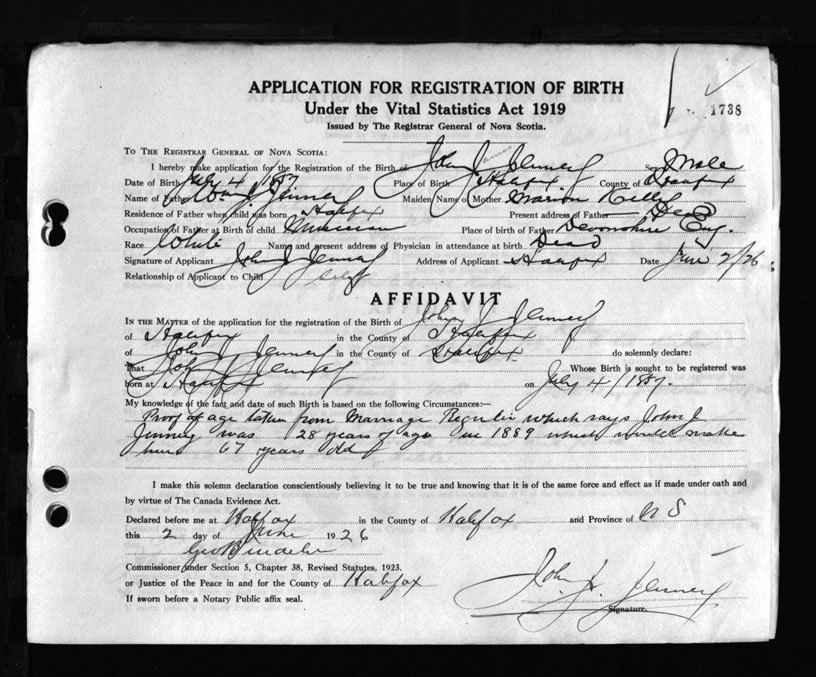 APPLICATION FOR REGISTRATION OF BIRTH
Under the Vital Statistics Act 1919
1738
Issued by The Registrar General of Nova Scotia.
To The Registrar General of Nova Scotia:
I hereby make application for the Registration of the Birth of John J. Sex Male
Date of Birth July 4/ Place of Birth Halifax County of Halifax
Name of Father Maiden Name of Mother Marion
Residence of Father when child was born Halifax Present address of Father Dead
Occupation of Father at Birth of child Musician Place of birth of Father Devonshire Eng.
Race White Name and present address of Physician in attendance at birth Dead
Signature of Applicant John J Address of Applicant Halifax Date June 2/26
Relationship of Applicant to Child Self
AFFIDAVIT
In the Matter of the application for the registration of the Birth of John J.
of Halifax in the County of Halifax
of John J. in the County of Halifax do solemnly declare:
that John J. Whose Birth is sought to be registered was
born at Halifax on July 4/
My knowledge of the fact and date of such Birth is based on the following Circumstances:—
Proof of age taken from Marriage Register which says John J.
was 28 years of age in 1889 which would make
him 67 years old
I make this solemn declaration conscientiously believing it to be true and knowing that it is of the same force and effect as if made under oath and
by virtue of The Canada Evidence Act.
Declared before me at Halifax in the County of Halifax and Province of N S
this 2 day of June 1926
Commissioner under Section 5, Chapter 38, Revised Statutes, 1923.
or Justice of the Peace in and for the County of Halifax
If sworn before a Notary Public affix seal.
John
Signature.